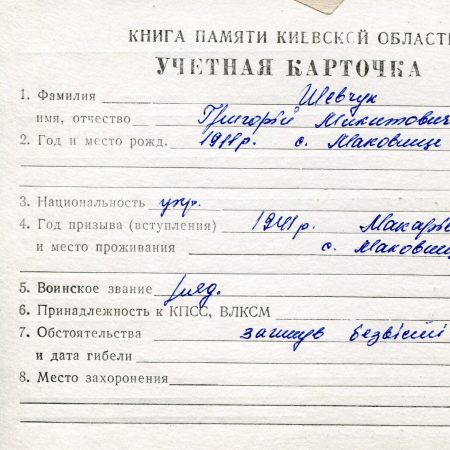 КНИГА ПАМЯТИ КИЕВСКОЙ ОБЛАСТ
УЧЕТНАЯ КАРТОЧКА
1. Фамилия Шевчук
имя, отчество Григорій Микитович
2. Год и место рожд. 1911р. с. Маковище
3. Национальность укр.
4. Год призыва (вступления) 1941р. Макарів
и место проживания с. Маковищ
5. Воинское звание ряд.
6. Принадлежность к КПСС, ВЛКСМ
7. Обстоятельства загинув безвісті
и дата гибели
8. Место захоронения